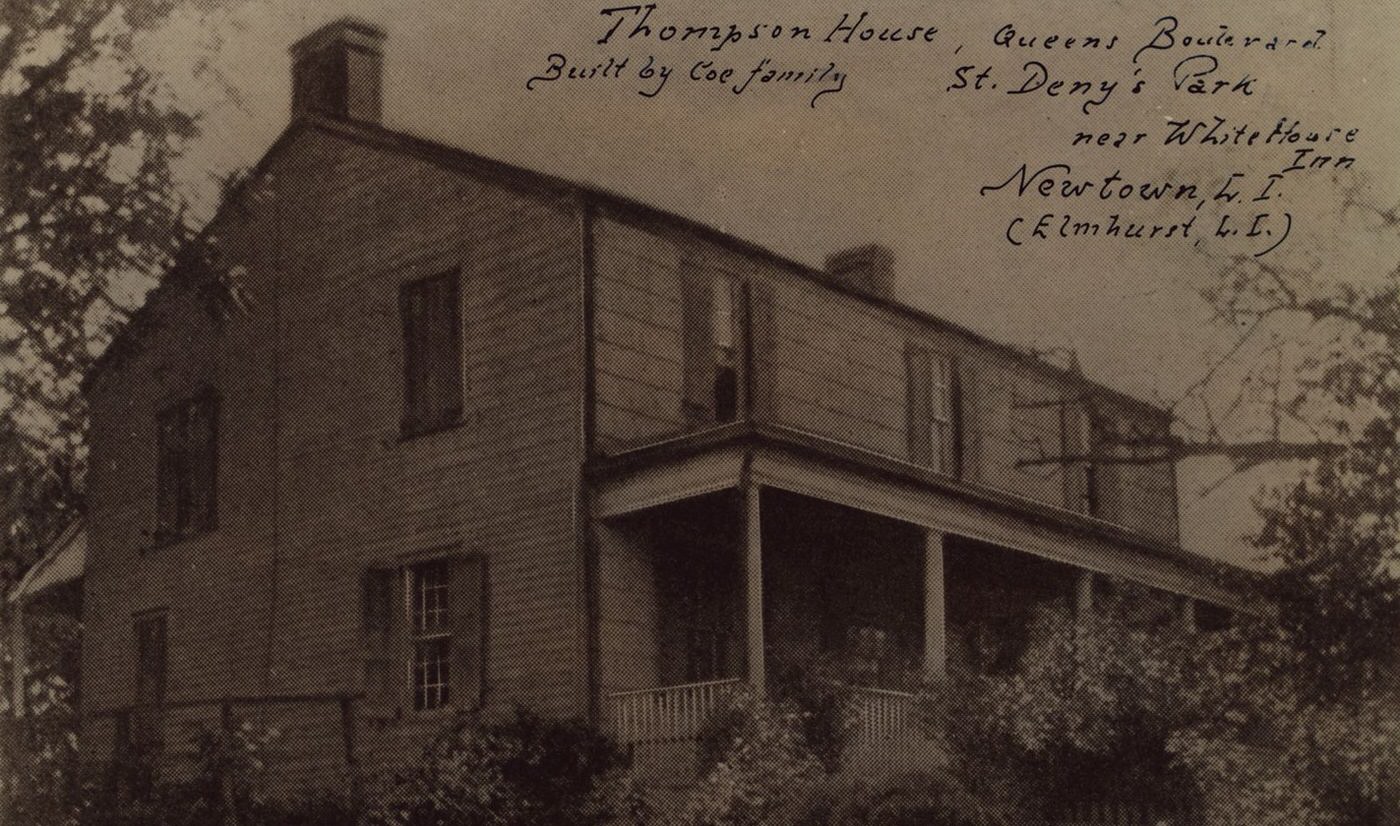 Thompson House, Queens Boulevard
Built by Coe family St. Deny's Park
near White House
Inn
Newtown, L. I.
(Elmhurst, L. I.)